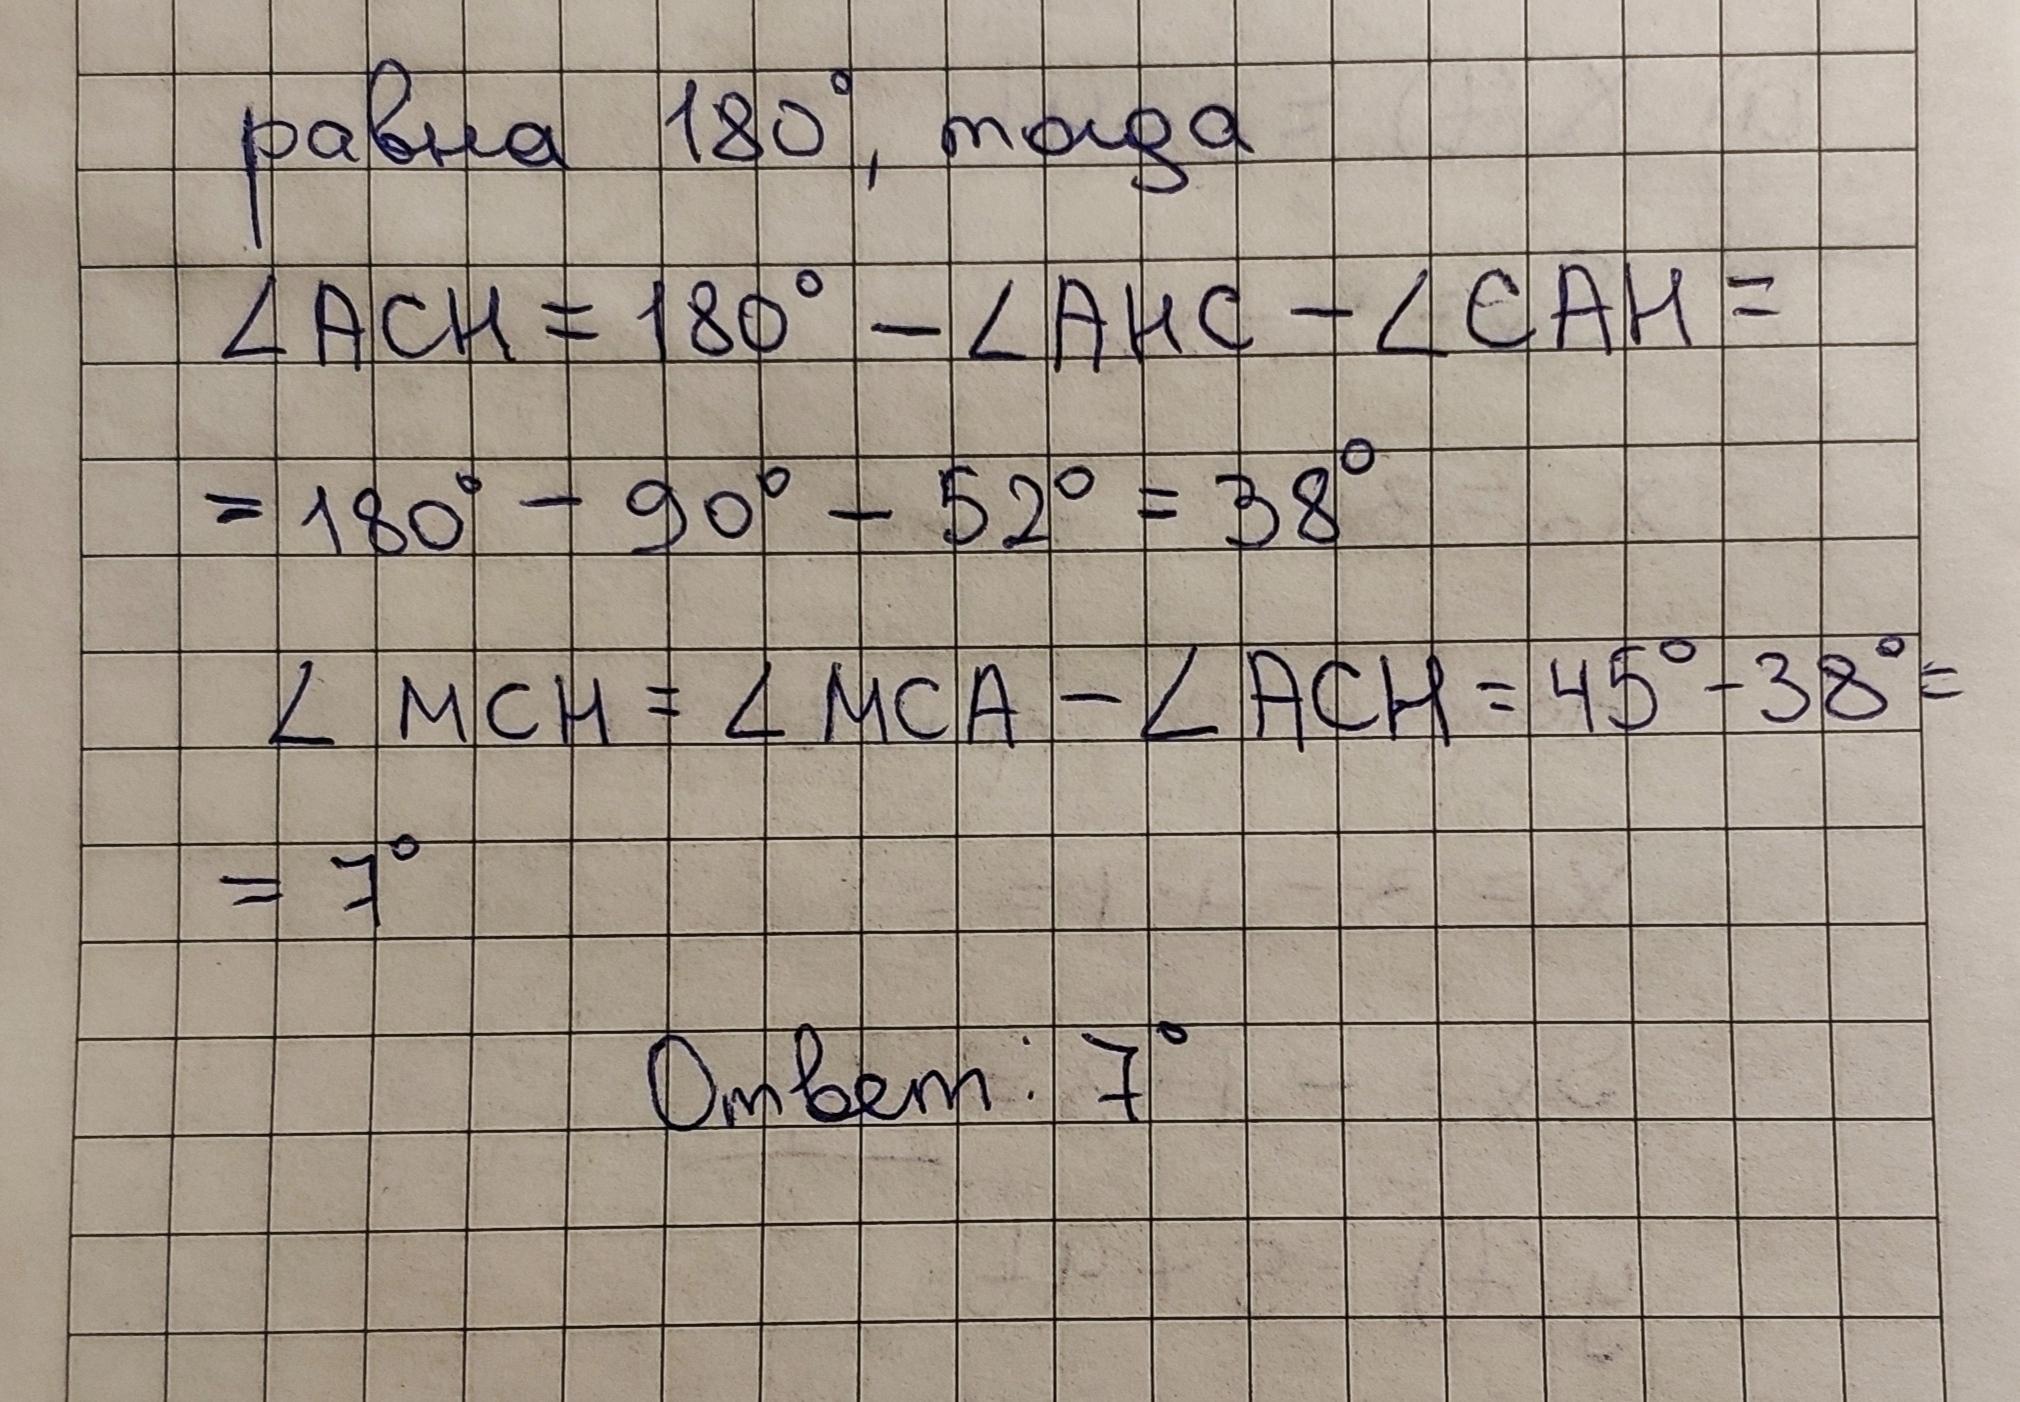 равна 180°, тогда
∠ACH = 180° – ∠AHC – ∠CAH =
= 180° – 90° – 52° = 38°
∠MCH = ∠MCA – ∠ACH = 45° – 38° =
= 7°
Ответ: 7°